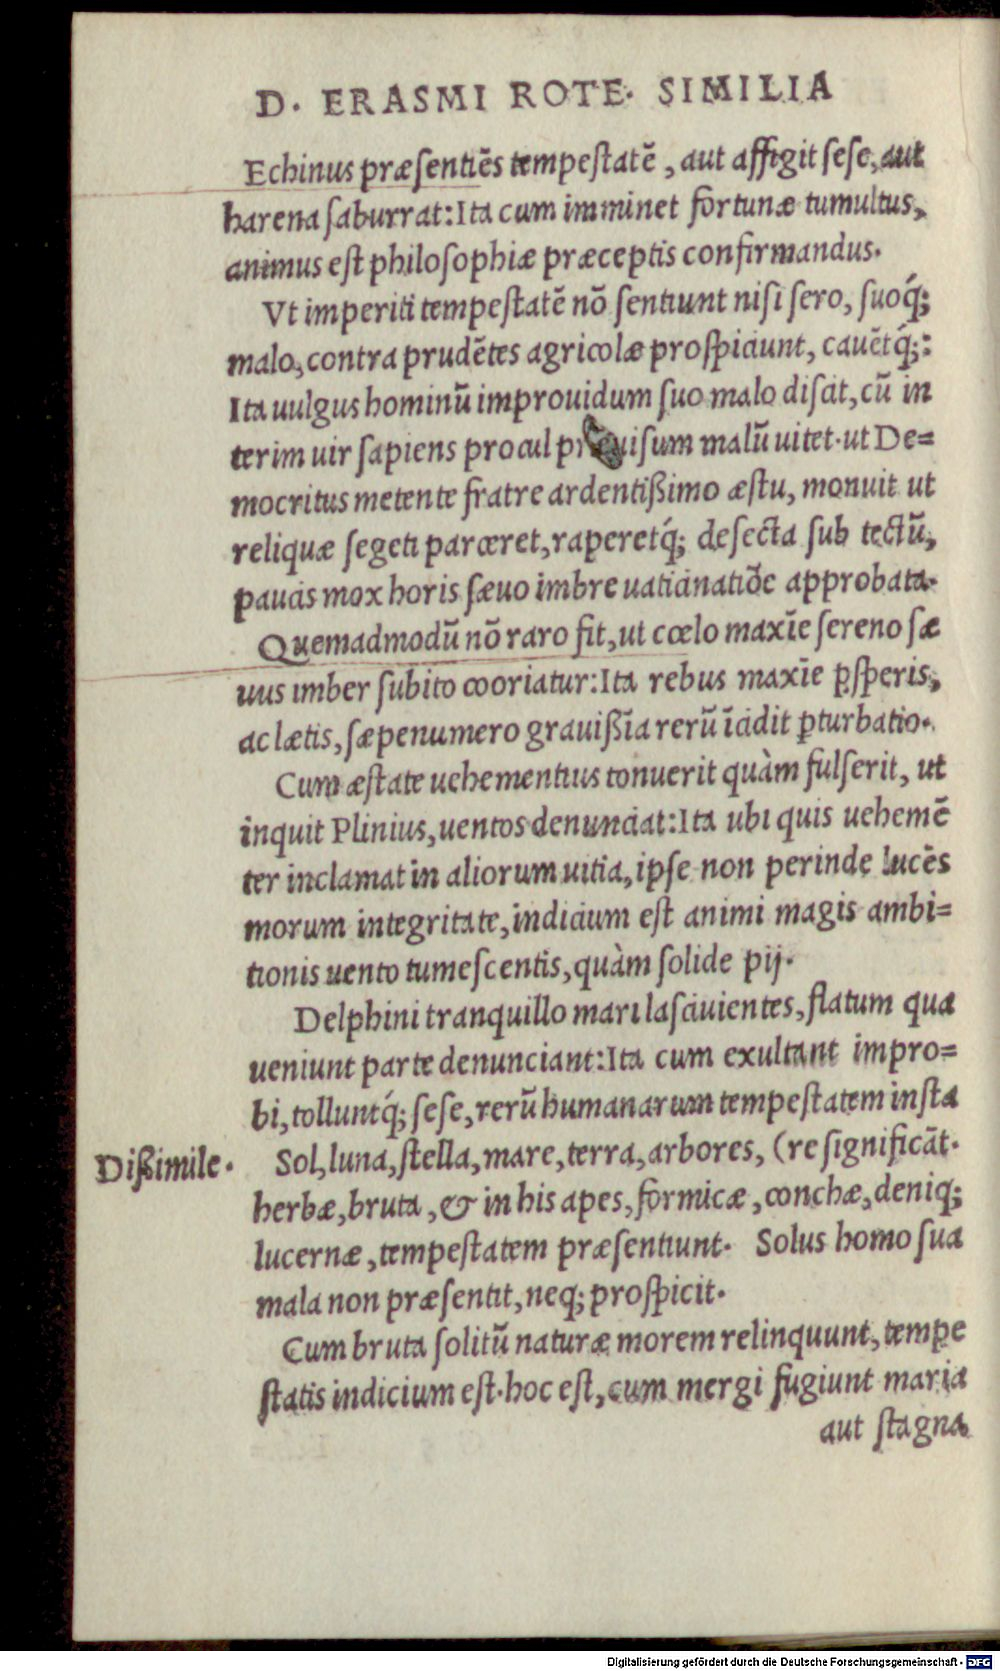 D. ERASMI ROTE. SIMILIA
Echinus præsentiẽs tempestatẽ, aut affigit sese, aut
harena saburrat: Ita cum imminet fortunæ tumultus,
animus est philosophiæ præceptis confirmandus.
Vt imperiti tempestatẽ nõ sentiunt nisi sero, suoq́;
malo, contra prudẽtes agricolæ prospiciunt, cauẽtq́;:
Ita uulgus hominũ improuidum suo malo discit, cũ in
terim uir sapiens procul præuisum malũ uitet. ut De=
mocritus metente fratre ardentißimo æstu, monuit ut
reliquæ segeti parceret, raperetq́; desecta sub tectũ,
paucis mox horis sæuo imbre uaticinatiõe approbata.
Quemadmodũ nõ raro fit, ut cœlo maxĩe sereno sæ
uus imber subito cooriatur: Ita rebus maxĩe ꝑsperis,
ac lætis, sæpenumero grauißĩa rerũ ĩcidit ꝑturbatio.
Cum æstate uehementius tonuerit quàm fulserit, ut
inquit Plinius, uentos denunciat: Ita ubi quis uehemẽ
ter inclamat in aliorum uitia, ipse non perinde lucẽs
morum integritate, indicium est animi magis ambi=
tionis uento tumescentis, quàm solide pij.
Delphini tranquillo mari lasciuientes, flatum qua
ueniunt parte denunciant: Ita cum exultant impro=
bi, tolluntq́; sese, rerũ humanarum tempestatem insta
Dißimile. Sol, luna, stella, mare, terra, arbores, (re significãt.
herbæ, bruta, & in his apes, formicæ, conchæ, deniq;
lucernæ, tempestatem præsentiunt. Solus homo sua
mala non præsentit, neq; prospicit.
Cum bruta solitũ naturæ morem relinquunt, tempe
statis indicium est. hoc est, cum mergi fugiunt maria
aut stagna
Digitalisierung gefördert durch die Deutsche Forschungsgemeinschaft - DFG